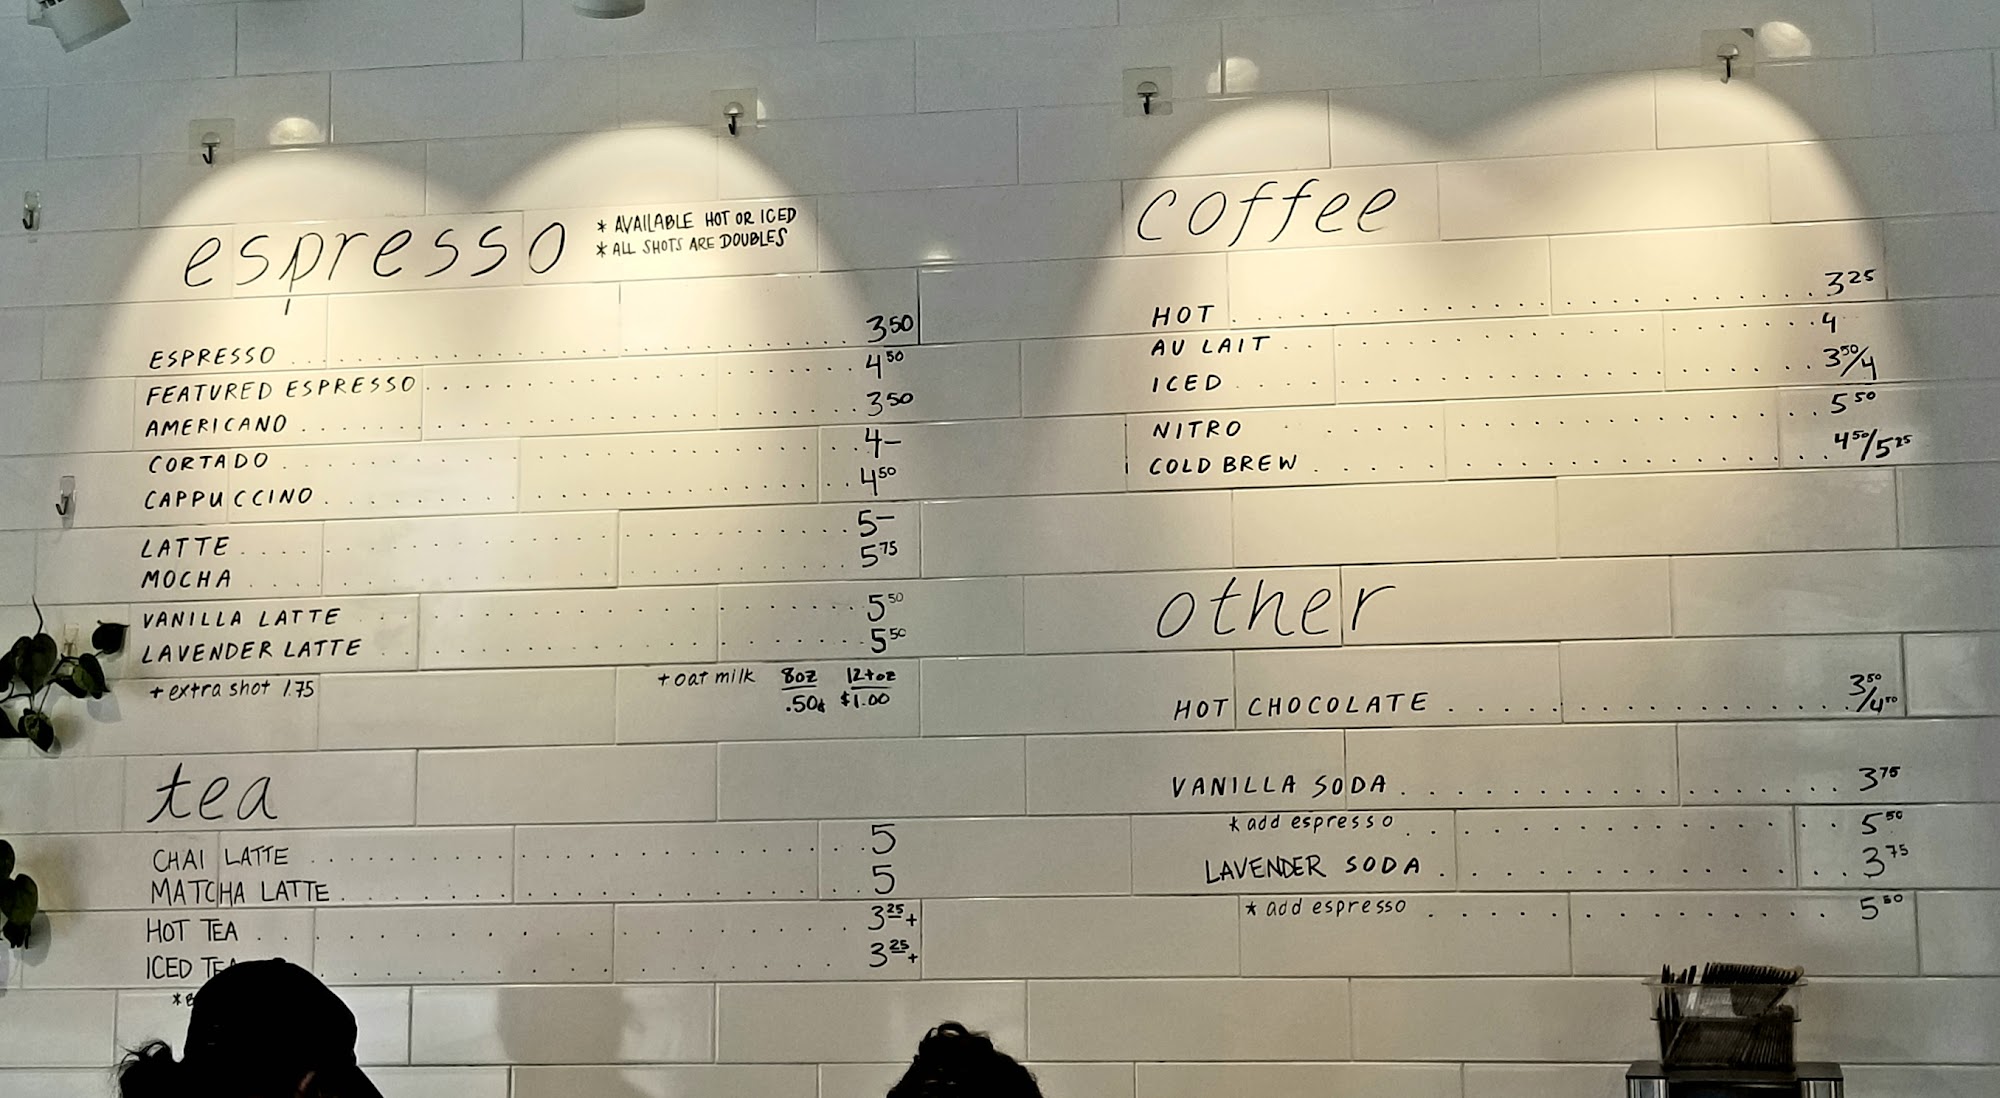 espresso
* AVAILABLE HOT OR ICED
* ALL SHOTS ARE DOUBLES
ESPRESSO 3 50
FEATURED ESPRESSO 4 50
AMERICANO 3 50
CORTADO 4 —
CAPPUCCINO 4 50
LATTE 5 —
MOCHA 5 75
VANILLA LATTE 5 50
LAVENDER LATTE 5 50
+ extra shot 1.75
+ oat milk 8oz 12+oz
.50¢ $1.00
tea
CHAI LATTE 5
MATCHA LATTE 5
HOT TEA 3 25+
ICED 3 25+
coffee
HOT 3 25
AU LAIT 4
ICED 3 50/4
NITRO 5 50
COLD BREW 4 50/5 25
other
HOT CHOCOLATE 3 50/4 50
VANILLA SODA 3 75
* add espresso 5 50
LAVENDER SODA 3 75
* add espresso 5 50